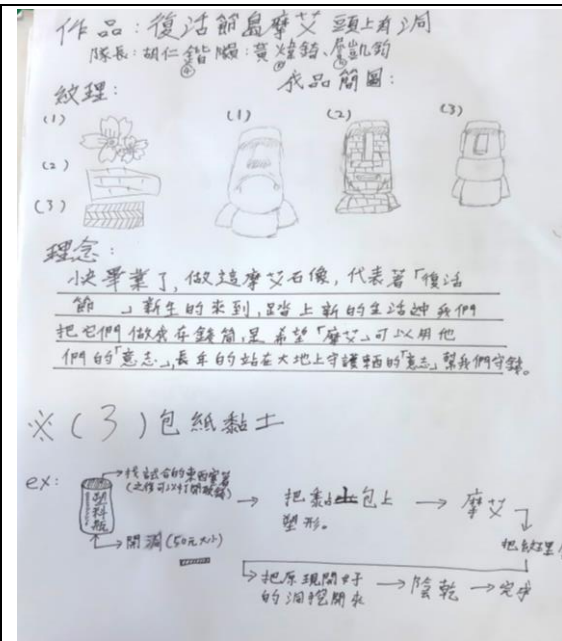 作品:復活節島摩艾 頭上有洞
隊長:胡仁鍇 隊:黃煒錡、詹凱鈞
成品簡圖:
紋理:
(1)
(2)
(3)
(1) (2) (3)
理念:
快畢業了,做這摩艾石像,代表著「復活
節」新生的來到,踏上新的生活
把它們做成存錢筒,是希望「摩艾」可以用他
們的「意志」,長年的站在大地上守護東西的「意志」幫我們守錢。
※(3)包紙黏土
ex:
塑料瓶
找適合的東西塞著
(之後可以打開取錢)
開洞(50元大小)
→ 把黏土包上
塑形。
→ 摩艾
把紋理
把原現開好
的洞挖開來
→陰乾→完成